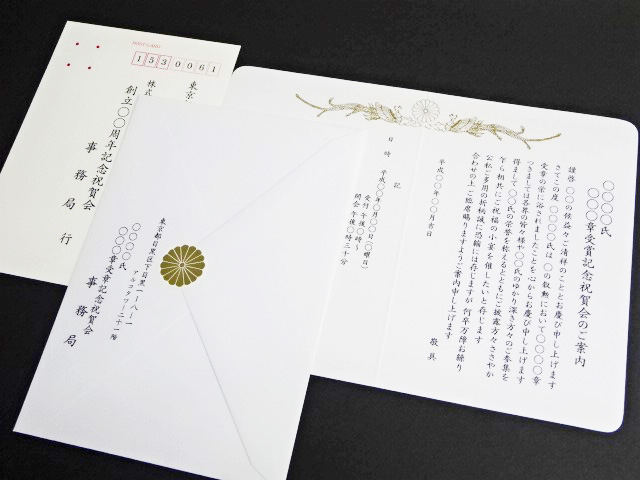 POST CARD
1530061
東京
株式
創立〇〇周年記念祝賀会
事務局 行
東京都目黒区下目黒一-八-一
アルコタワー二十一階
〇〇〇〇氏
〇〇〇章受章記念祝賀会
事務局
〇〇〇〇氏
〇〇〇章受賞記念祝賀会のご案内
謹啓 〇〇の候益々ご清祥のこととお慶び申し上げます
さてこの度 〇〇〇〇氏は 〇の叙勲において〇〇〇〇章
受章の栄に浴されましたことを心からお慶び申し上げます
つきましては各界の皆々様や〇〇氏のゆかり深き方々のご参集を
得まして 〇〇氏の栄誉を称えるとともにご披露方々ささやか
乍ら相共にご祝福の小宴を催したいと存じます
公私ご多用の折柄誠に恐縮には存じますが 何卒万障お繰り
合わせの上 ご臨席賜りますようご案内申し上げます
敬具
平成〇〇年〇〇月吉日
記
日時 平成〇〇年〇月〇〇日(〇曜日)
受付 午後〇時〜
開会 午後〇時三十分